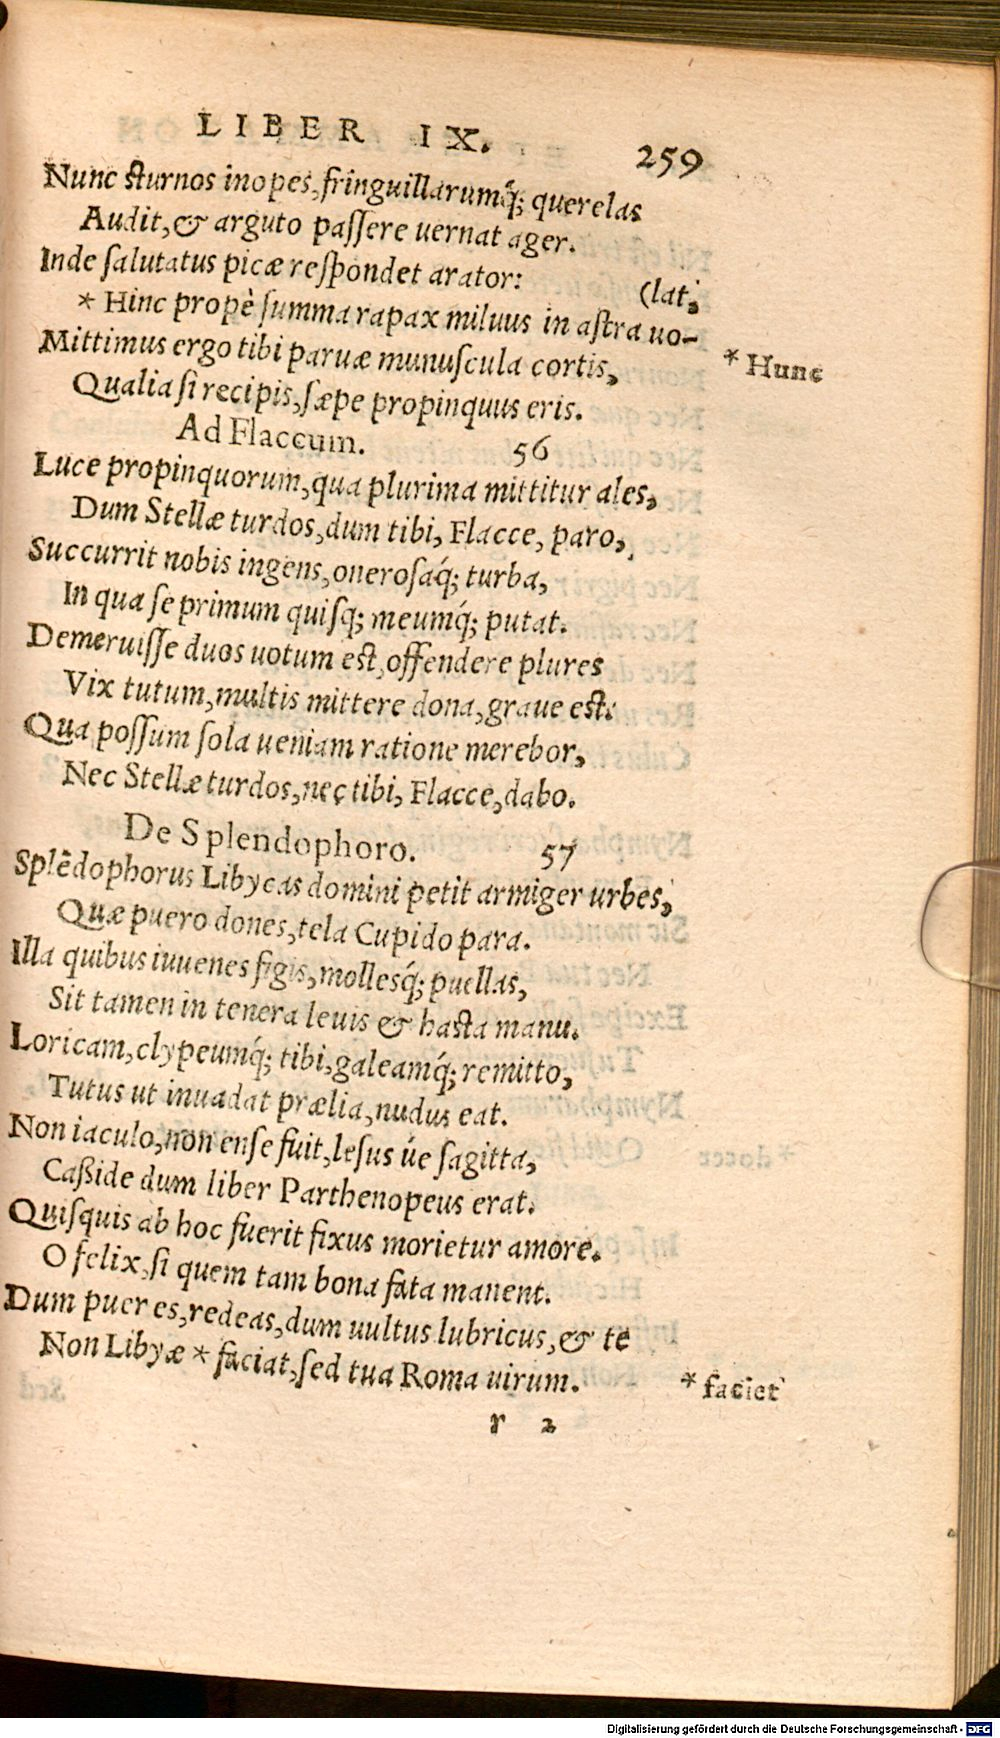 LIBER IX. 259
Nunc sturnos inopes, fringuillarumq́; querelas
Audit, & arguto paſſere uernat ager.
Inde ſalutatus picæ reſpondet arator: (lat,
* Hinc propè ſumma rapax miluus in aſtra uo-
* Hunc
Mittimus ergo tibi paruæ munuſcula cortis,
Qualia ſi recipis, ſæpe propinquus eris.
Ad Flaccum. 56
Luce propinquorum, qua plurima mittitur ales,
Dum Stellæ turdos, dum tibi, Flacce, paro,
Succurrit nobis ingens, oneroſaq́; turba,
In qua ſe primum quiſq; meumq́; putat.
Demeruiſſe duos uotum eſt, offendere plures
Vix tutum, multis mittere dona, graue eſt.
Qua poſſum ſola ueniam ratione merebor,
Nec Stellæ turdos, nec tibi, Flacce, dabo.
De Splendophoro. 57
Splēdophorus Libycas domini petit armiger urbes,
Quæ puero dones, tela Cupido para.
Illa quibus iuuenes figis, molleſq́; puellas,
Sit tamen in tenera leuis & haſta manu.
Loricam, clypeumq́; tibi, galeamq́; remitto,
Tutus ut inuadat prælia, nudus eat.
Non iaculo, non enſe fuit, leſus úe ſagitta,
Caßide dum liber Parthenopeus erat.
Quiſquis ab hoc fuerit fixus morietur amore.
O felix, ſi quem tam bona fata manent.
Dum puer es, redeas, dum uultus lubricus, & te
Non Libyæ * faciat, ſed tua Roma uirum.
* faciet
r 2
Digitalisierung gefördert durch die Deutsche Forschungsgemeinschaft - DFG